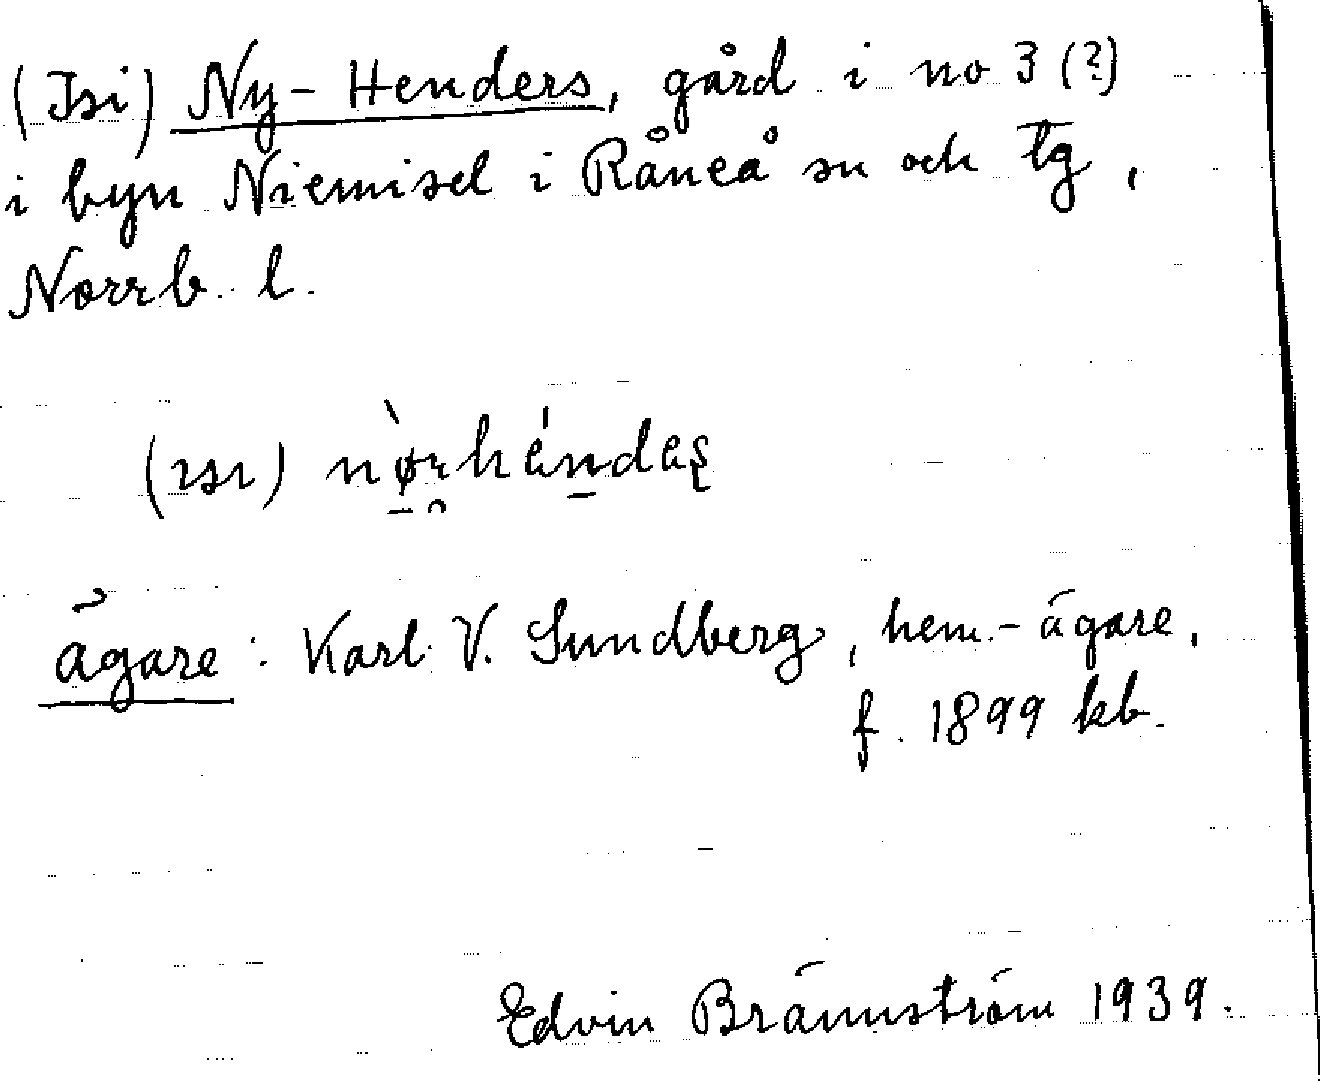 (Isi) Ny-Henders, gård i no 3 (?)
i byn Niemisel i Råneå sn och tg,
Norrb. l.
(ısı) nø̀ɪhéndaş
ägare: Karl V. Sundberg, hem.-ägare,
f. 1899 kb.
Edvin Brännström 1939.